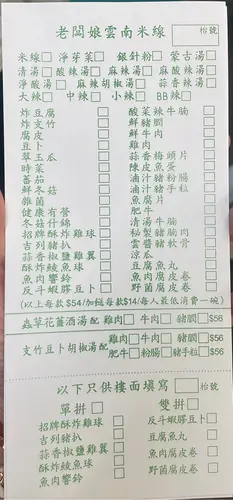 老闆娘雲南米線 枱號
米線 净芽菜 銀針粉 蒙古湯
清湯 酸辣湯 麻辣湯 麻酸辣湯
净酸湯 麻辣胡椒湯 蒜香辣湯
大辣 中辣 小辣 BB辣
炸豆腐 酸菜辣牛腩
炸支竹 鮮豬膶
腐皮 鮮牛肉
豆卜 雞肉
翠玉瓜 蒜香梅頭片
時菜 陳皮魚蛋
蕃茄 滷汁豬粉腸
鮮冬菇 滷汁豬手粒
雜菌 魚腐片
健康有營 肥牛
冬菇什錦 清湯牛腩
招牌酥炸雞球 秘製豬腩肉
吉列豬扒 雲醬豬軟骨
蒜香椒鹽雞翼 涼瓜
酥炸鯪魚球 豆腐魚丸
魚肉響鈴 魚肉腐皮卷
反斗蝦膠豆卜 野菌腐皮卷
(以上每款$54/加餸每款$14/每人最低消費一碗)
蟲草花薑酒湯配 雞肉 牛肉 豬膶 $56
支竹豆卜胡椒湯配 雞肉 牛肉 豬膶 $56
肥牛 粉腸 豬手粒 $56
以下只供樓面填寫 枱號
單拼 雙拼
招牌酥炸雞球 反斗蝦膠豆卜
吉列豬扒 豆腐魚丸
蒜香椒鹽雞翼 魚肉腐皮卷
酥炸鯪魚球 野菌腐皮卷
魚肉響鈴